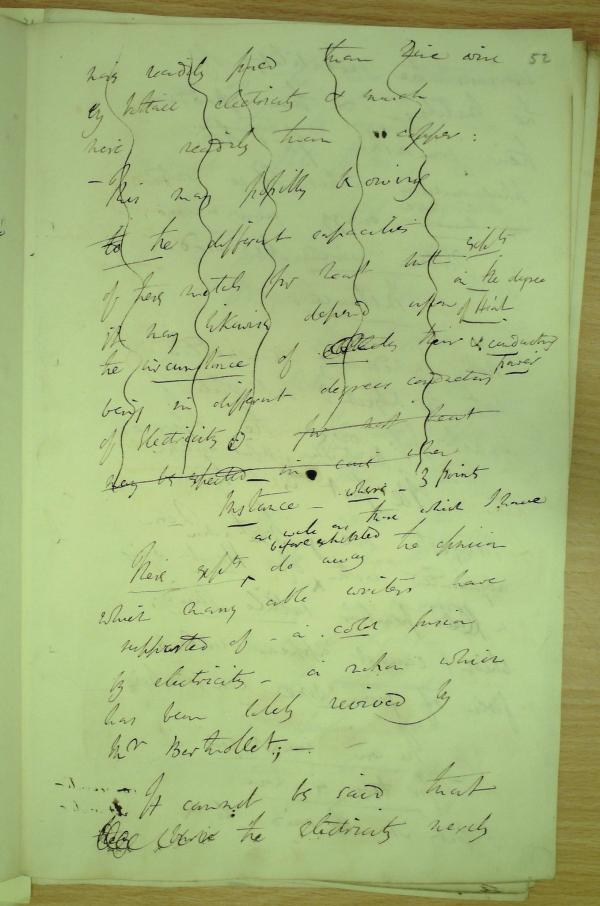 52
more readily fused than Zinc wire
by Voltaic electricity & much
more readily than copper:
— This may possibly be owing
to the different capacities
of these metals for heat but
it may likewise depend upon
in the degree
of Heat
the circumstance of their
& conducting
power
being in different degrees conductors
of Electricity
for most heat
may be expected in
Instance — where — 3 points
as well as those which I have
before exhibited
These expts, do away the opinion
which many able writers have
supported of – a cold fusion
by electricity – a notion which
has been lately revived by
Mr Berthollet; —
It cannot be said that
the electricity merely